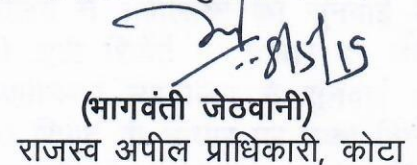 8/5/15
(भागवंती जेठवानी)
राजस्व अपील प्राधिकारी, कोटा